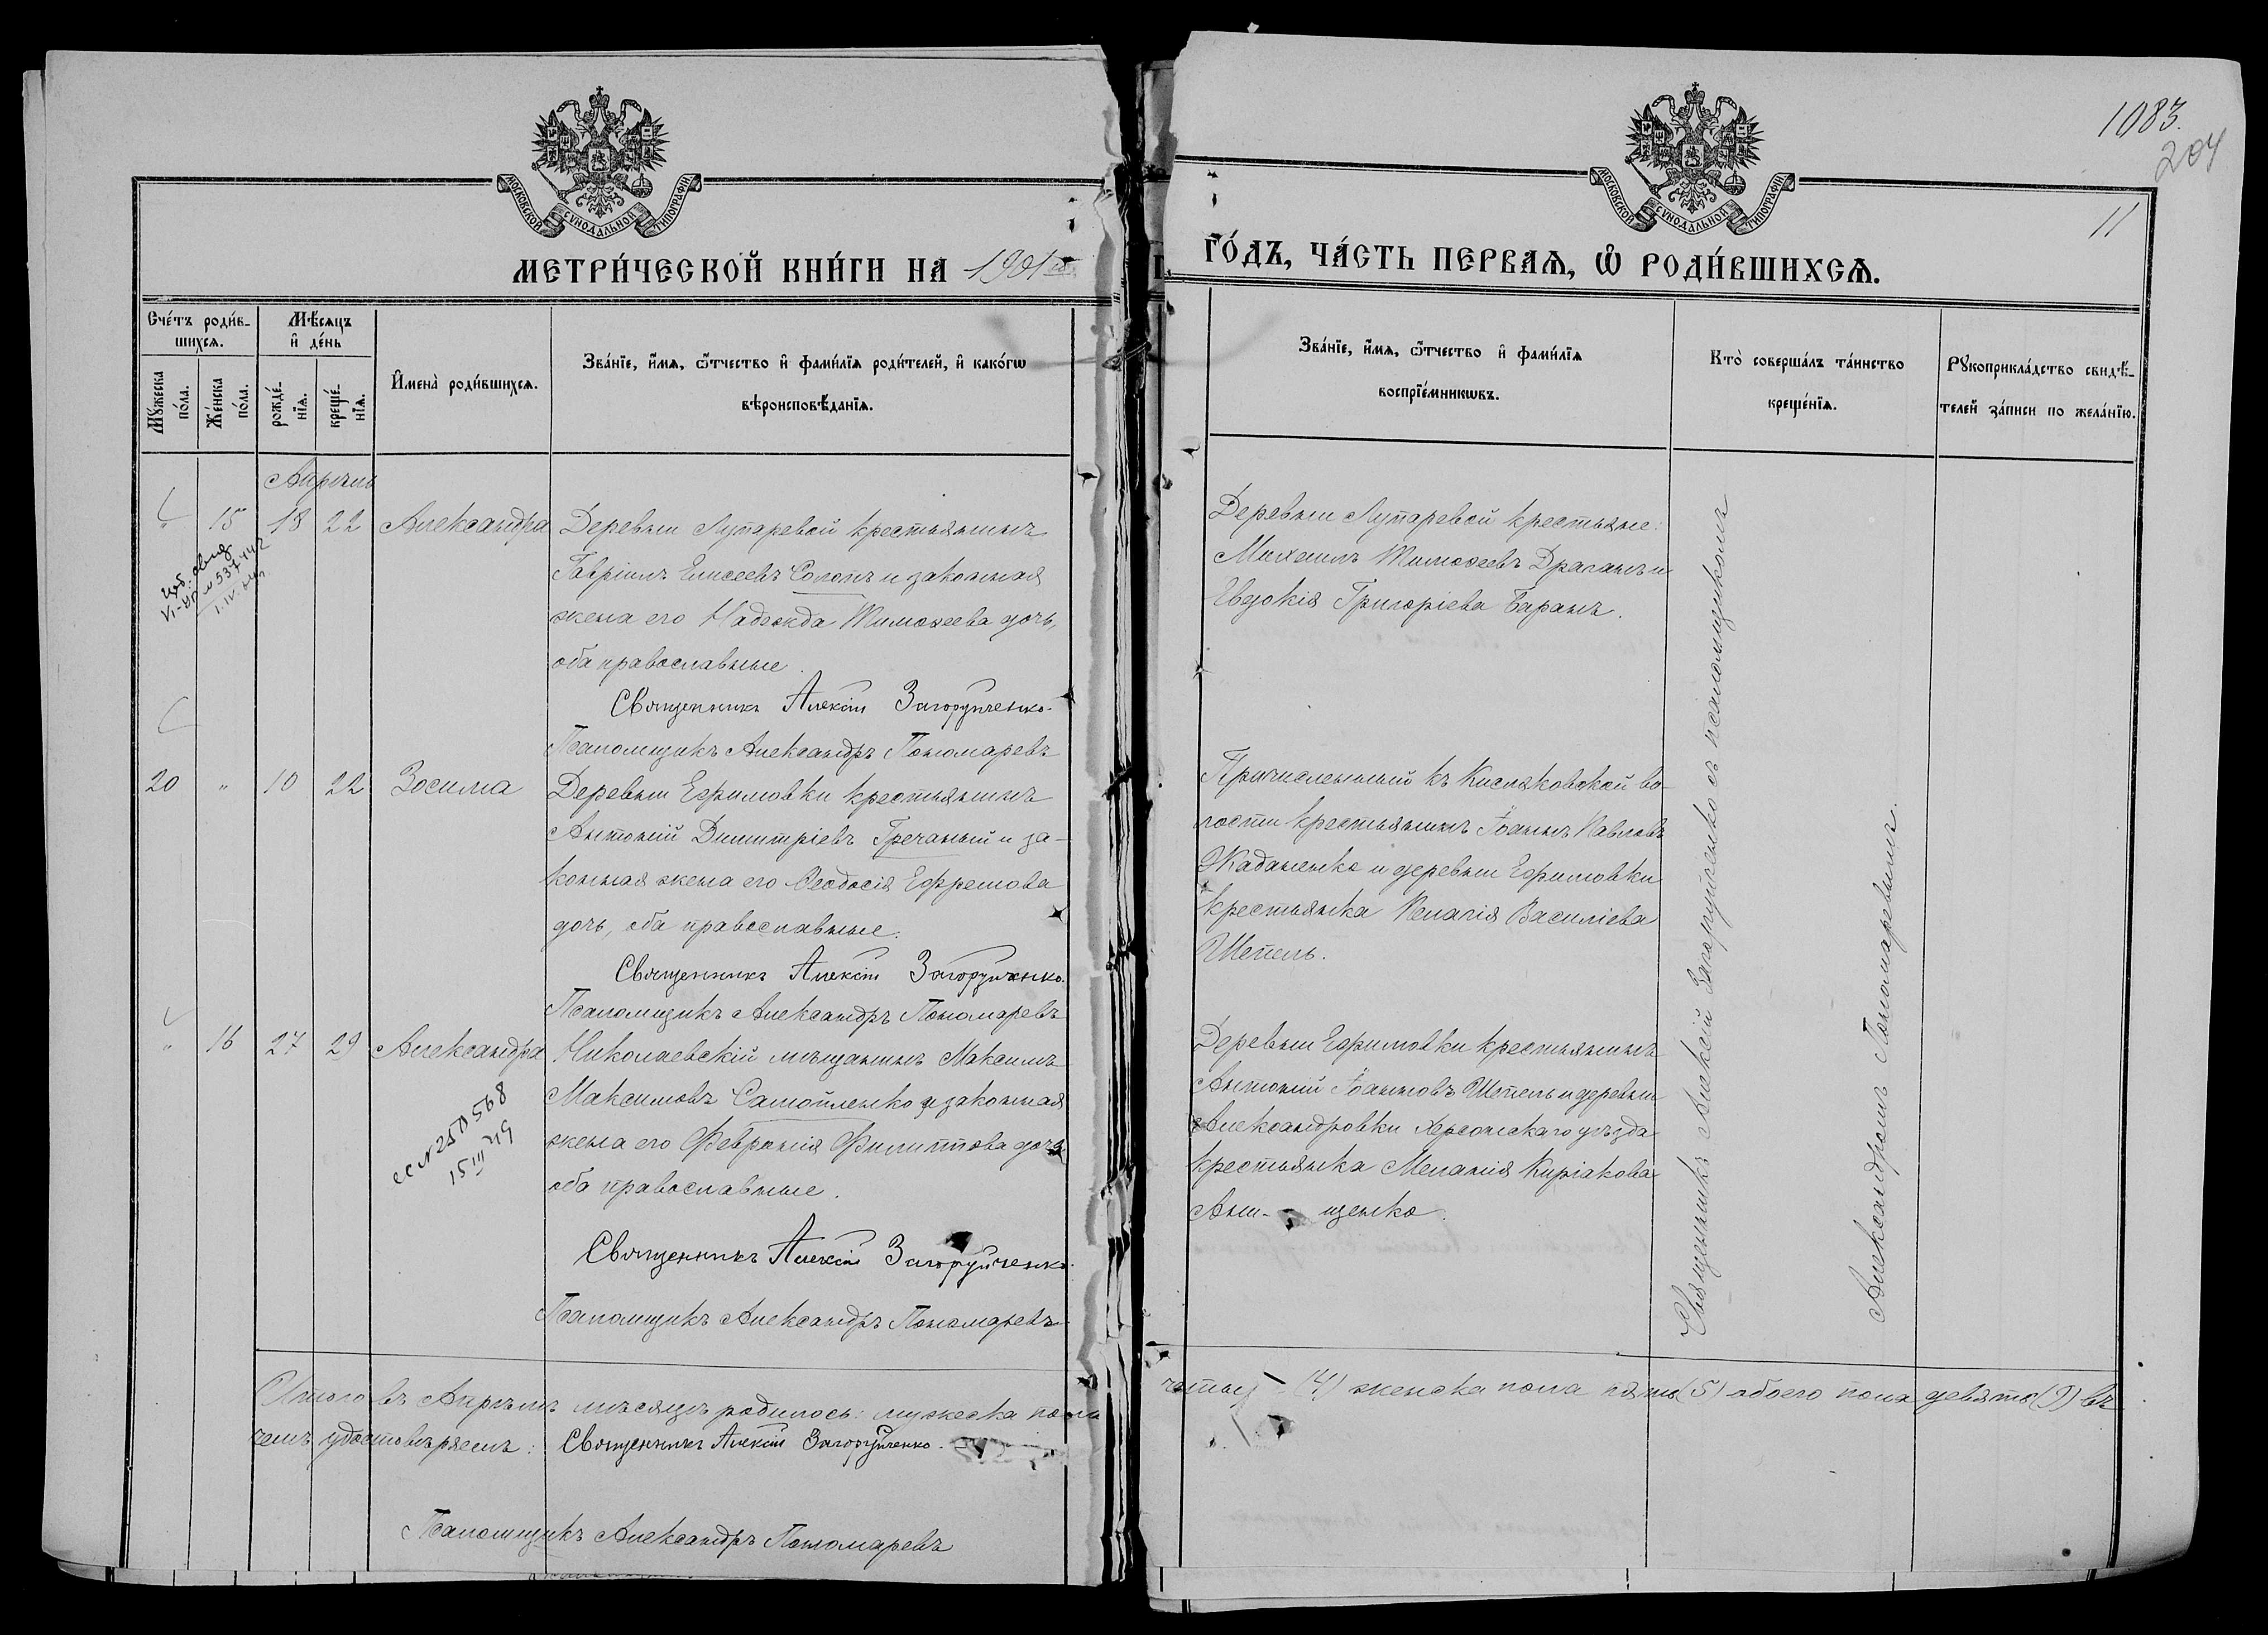 1083.
204
11
МОСКОВСКОЙ СУНОДАЛЬНОЙ ТИПОГРАФІИ
МОСКОВСКОЙ СУНОДАЛЬНОЙ ТИПОГРАФІИ
МЕТРИ́ЧЕСКОЙ КНИ́ГИ НА 1901 ГО́ДЪ, ЧА́СТЬ ПЕРВАѦ, Ѡ҆ РОДИ́ВШИХСѦ.
Сче́тъ роди́вшихсѧ.
Мꙋ́жеска по́ла.
Же́нска по́ла.
Мѣ́сѧцъ и҆ де́нь
рожде́нїѧ.
креще́нїѧ.
И҆мена̀ роди́вшихсѧ.
Зва́нїе, и҆́мѧ, ѻ҆́тчество и҆ фами́лїѧ роди́телей, и҆ како́гѡ
вѣроисповѣ́данїѧ.
Зва́нїе, и҆́мѧ, ѻ҆́тчество и҆ фами́лїѧ
воспрїе́мникѡвъ.
Кто̀ соверша́лъ та́инство
креще́нїѧ.
Рꙋкоприкла́дство свидѣ́-
телей за́писи по жела́нїю.
Апрѣль
" 15 18 22 Александра
Деревни Лупаревой крестьянинъ
Гавріилъ Елисеевъ Солопъ и законная
жена его Надежда Тимоѳеева дочь,
оба православные.
Священникъ Алексій Загоруйченко.
Псаломщикъ Александръ Пономаревъ
Деревни Лупаревой крестьяне:
Михаилъ Тимоѳеевъ Драганъ и
Евдокія Григоріева Баранъ.
20 " 10 22 Зосима
Деревни Ефимовки крестьянинъ
Антоній Димитріевъ Гречаный и за-
конная жена его Ѳеодосія Ефремова
дочь, оба православные.
Священникъ Алексій Загоруйченко.
Псаломщикъ Александръ Пономаревъ
Причисленный къ Кисляковской во-
лости крестьянинъ Іоаннъ Павловъ
Жаданенко и деревни Ефимовки
крестьянка Пелагія Василіева
Шепель.
" 16 27 29 Александра
Николаевскій мѣщанинъ Максимъ
Максимовъ Самойленко и законная
жена его Февронія Филиппова дочь
оба православные.
Священникъ Алексій Загоруйченко.
Псаломщикъ Александръ Пономаревъ
15 III
Деревни Ефимовки крестьянинъ
Антоній Іоанновъ Шепель и деревни
Александровки Херсонскаго уѣзда
крестьянка Меланія Киріакова
Они- щенко.
Священникъ Алексій Загоруйченко съ псаломщикомъ
Александромъ Пономаревымъ.
Итого въ Апрѣлѣ мѣсяцѣ родилось: мужеска пола четыре (4) женска пола пять (5) обоего пола девять (9) въ
чемъ удостовѣряемъ: Священникъ Алексій Загоруйченко.
Псаломщикъ Александръ Пономаревъ